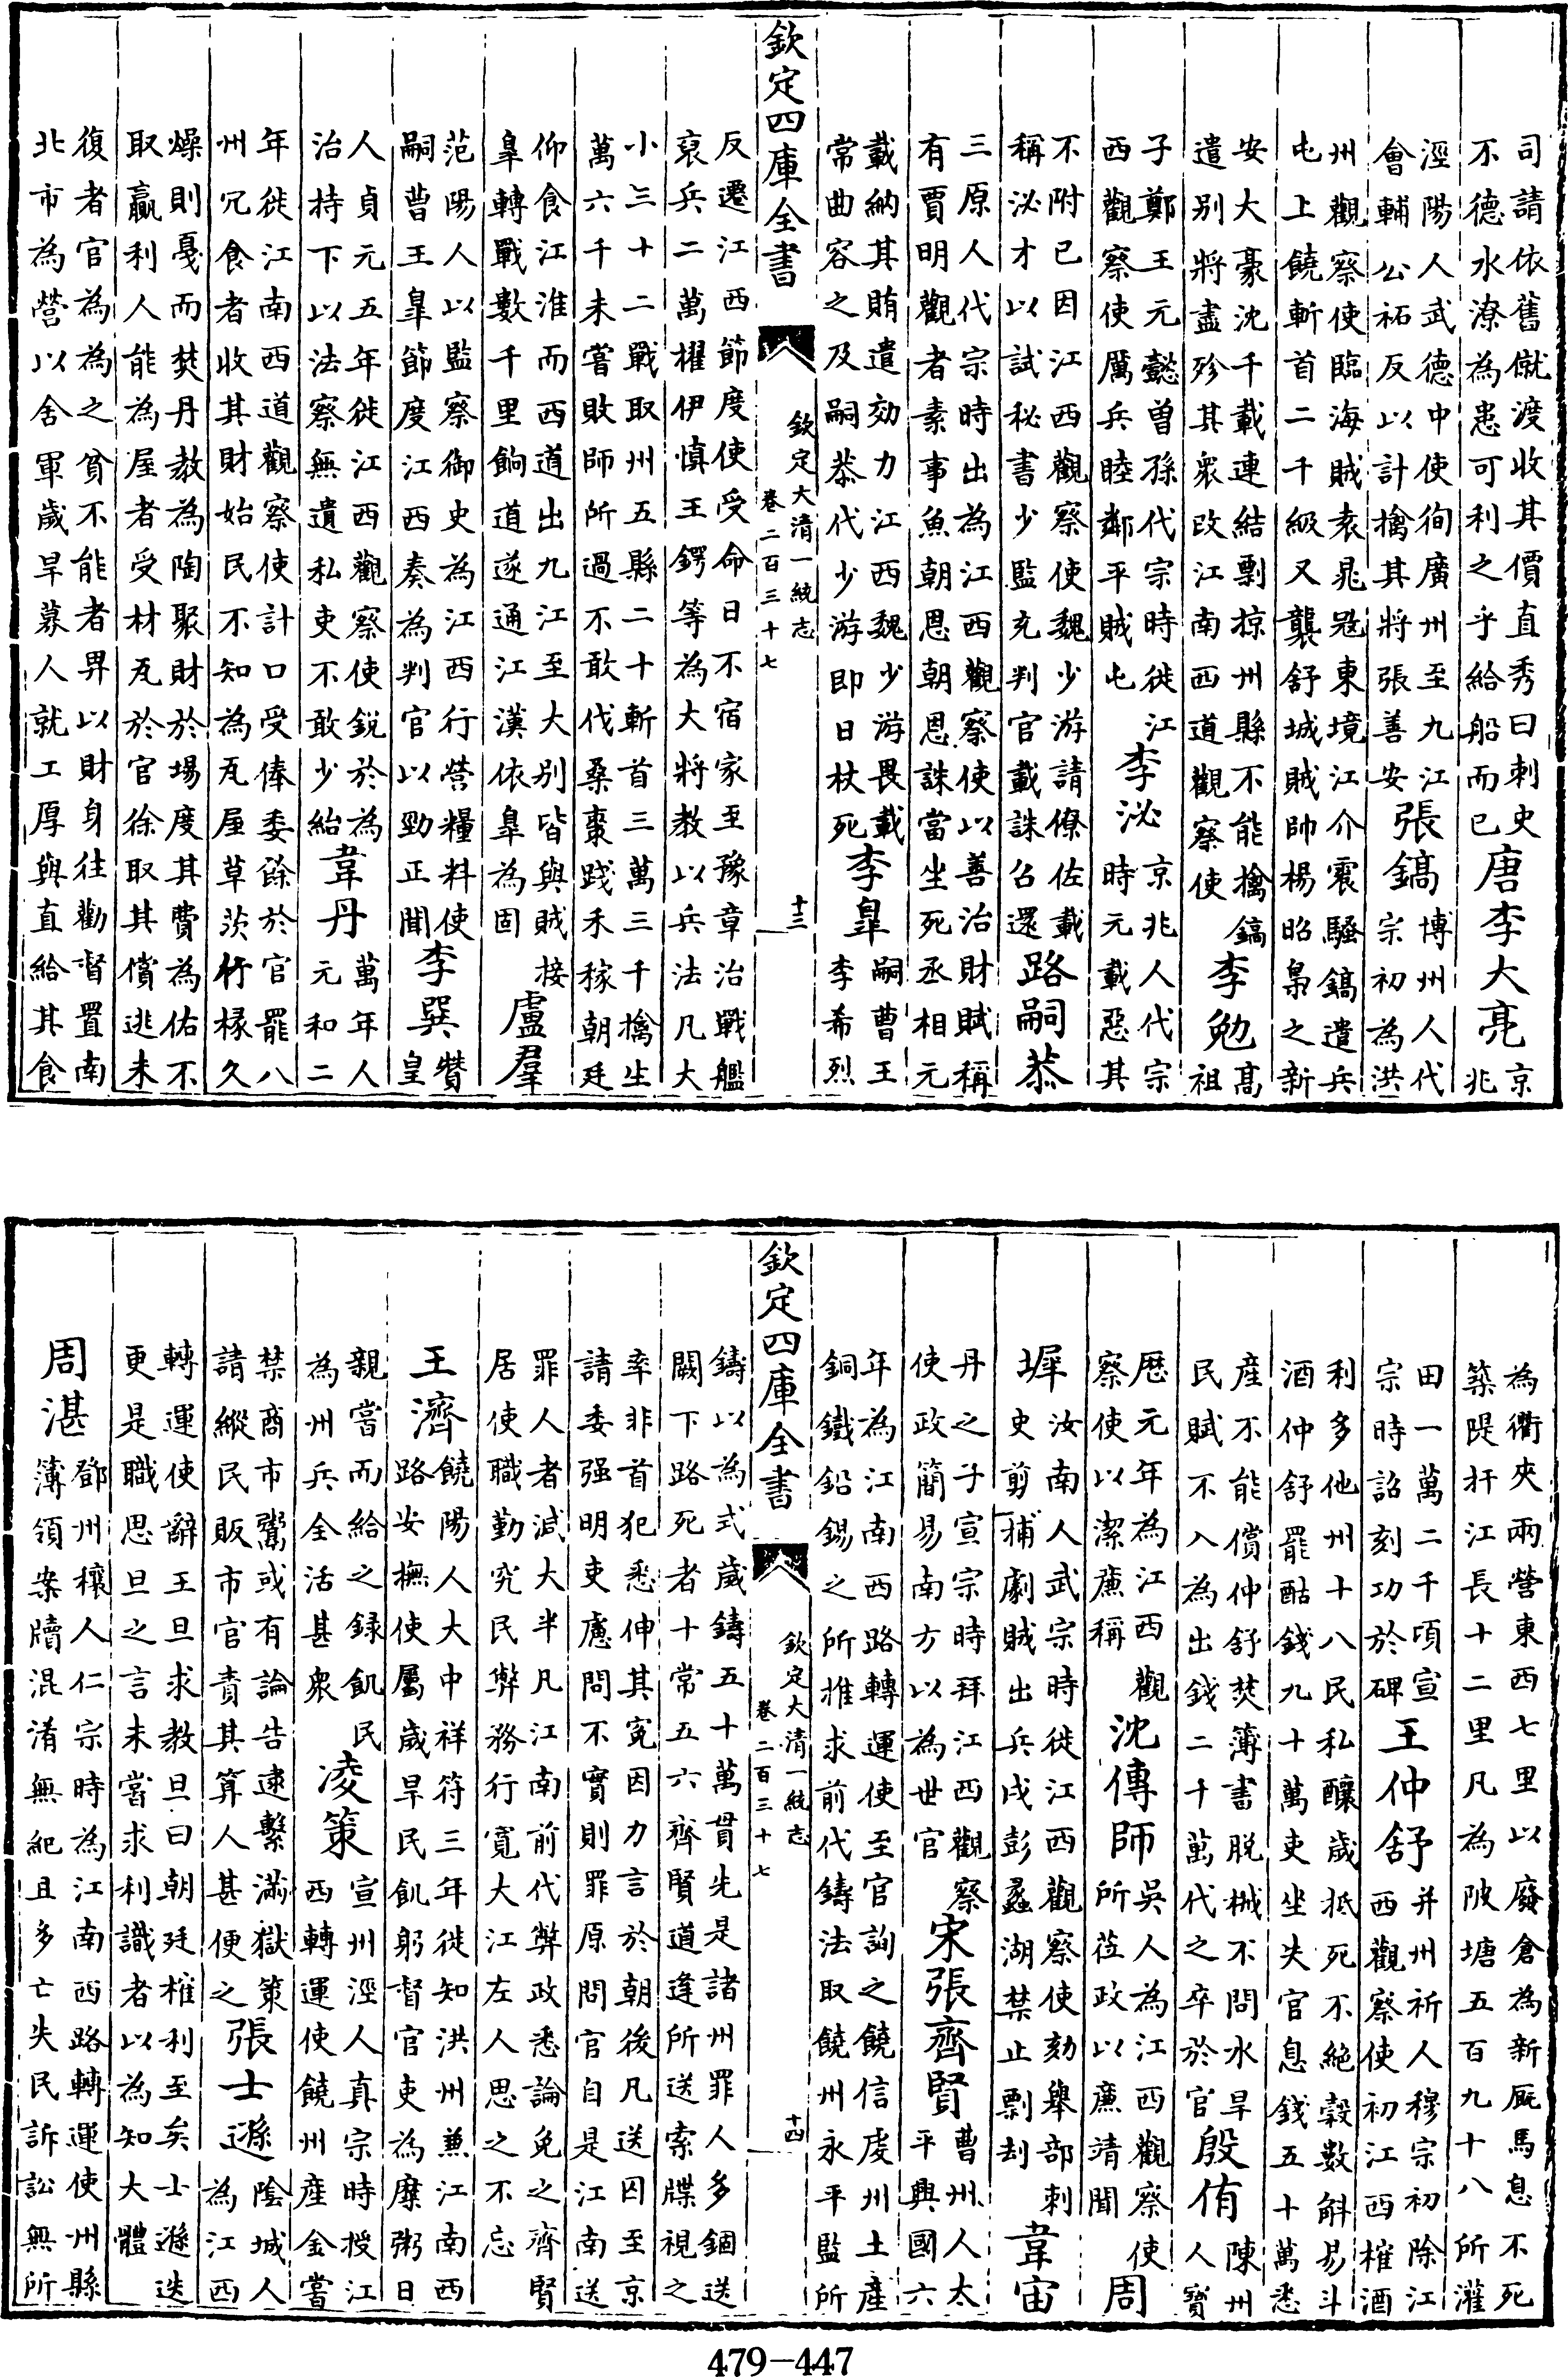 司請依舊僦渡收其價直秀曰刺史
不德水潦為患可利之乎給船而已
唐李大亮
京
兆
涇陽人武德中使徇廣州至九江
會輔公祏反以計擒其將張善安
張鎬
博州人代
宗初為洪
州觀察使臨海賊袁晁冦東境江介震騷鎬遣兵
屯上饒斬首二千級又襲舒城賊帥楊昭梟之新
安大豪沈千載連結剽掠州縣不能擒鎬
遣别將盡殄其衆改江南西道觀察使
李勉
高
祖
子鄭王元懿曽孫代宗時徙江
西觀察使厲兵睦鄰平賊屯
李泌
京兆人代宗
時元載惡其
不附已因江西觀察使魏少游請僚佐載
稱泌才以試秘書少監充判官載誅召還
路嗣恭
三原人代宗時出為江西觀察使以善治財賦稱
有賈明觀者素事魚朝恩朝恩誅當坐死丞相元
載納其賄遣効力江西魏少游畏載
常曲容之及嗣恭代少游即日杖死
李臯
嗣曹王
李希烈
欽定四庫全書
欽定大清一統志
卷二百三十七
十三
反遷江西節度使受命日不宿家至豫章治戰艦
裒兵二萬櫂伊慎王鍔等為大將教以兵法凡大
小三十二戰取州五縣二十斬首三萬三千擒生
萬六千未嘗敗師所過不敢伐桑棗踐禾稼朝廷
仰食江淮而西道出九江至大别皆與賊接
臯轉戰數千里餉道遂通江漢依臯為固
盧羣
范陽人以監察御史為江西行營糧料使
嗣曹王臯節度江西奏為判官以勁正聞
李巽
贊
皇
人貞元五年徙江西觀察使鋭於為
治持下以法察無遺私吏不敢少紿
韋丹
萬年人
元和二
年徙江南西道觀察使計口受俸委餘於官罷八
州冗食者收其財始民不知為瓦屋草茨竹椽久
燥則戞而焚丹教為陶聚財於場度其費為佑不
取贏利人能為屋者受材瓦於官徐取其償逃未
復者官為為之貧不能者畀以財身往勸督置南
北市為營以舍軍歲旱募人就工厚與直給其食
為衢夾兩營東西七里以廢倉為新厩馬息不死
築隄扞江長十二里凡為陂塘五百九十八所灌
田一萬二千頃宣
宗時詔刻功於碑
王仲舒
并州祈人穆宗初除江
西觀察使初江西榷酒
利多他州十八民私釀歲抵死不絶穀數斛易斗
酒仲舒罷酤錢九十萬吏坐失官息錢五十萬悉
産不能償仲舒焚簿書脱械不問水旱
民賦不入為出錢二千萬代之卒於官
殷侑
陳州
人寳
歴元年為江西觀
察使以潔亷稱
沈傳師
吳人為江西觀察使
所蒞政以亷靖聞
周
墀
汝南人武宗時徙江西觀察使劾舉部刺
史剪捕劇賊出兵戍彭蠡湖禁止剽刦
韋宙
丹之子宣宗時拜江西觀察
使政簡易南方以為世官
宋張齊賢
曹州人太
平興國六
年為江南西路轉運使至官詢之饒信䖍州土産
銅鐵鉛錫之所推求前代鑄法取饒州永平監所
欽定四庫全書
欽定大清一統志
卷二百三十七
十四
鑄以為式歲鑄五十萬貫先是諸州罪人多錮送
闕下路死者十常五六齊賢道逢所送索牒視之
率非首犯悉伸其寃因力言於朝後凡送囚至京
請委强明吏慮問不實則罪原問官自是江南送
罪人者減大半凡江南前代弊政悉論免之齊賢
居使職勤究民弊務行寛大江左人思之不忘
王濟
饒陽人大中祥符三年徙知洪州兼江南西
路安撫使屬歲旱民飢躬督官吏為糜粥日
親嘗而給之録飢民
為州兵全活甚衆
凌策
宣州涇人真宗時授江
西轉運使饒州産金嘗
禁商市鬻或有論告逮繫滿獄策
請縱民販市官責其算人甚便之
張士遜
陰城人
為江西
轉運使辭王旦求教旦曰朝廷榷利至矣士遜迭
更是職思旦之言未嘗求利識者以為知大體
周湛
鄧州穰人仁宗時為江南西路轉運使州縣
簿領案牘混淆無紀且多亡失民訴訟無所
479-447